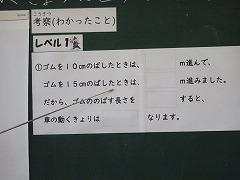 こうさつ
考察(わかったこと)
レベル1
①ゴムを10cmのばしたときは、 m進んで、
ゴムを15cmのばしたときは、 m進みました。
だから、ゴムののばす長さを すると、
車の動くきょりは なります。